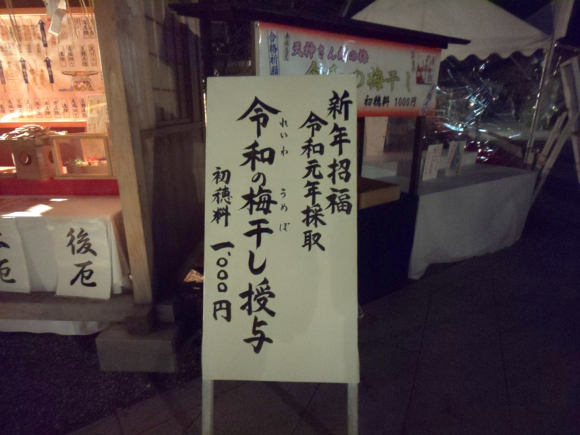 新年招福
令和元年採取
令和の梅干し授与
れいわ うめぼ
初穂料 一、〇〇〇円
天神さんの梅
の梅干し
初穂料 1000円
合格祈願
後厄
厄